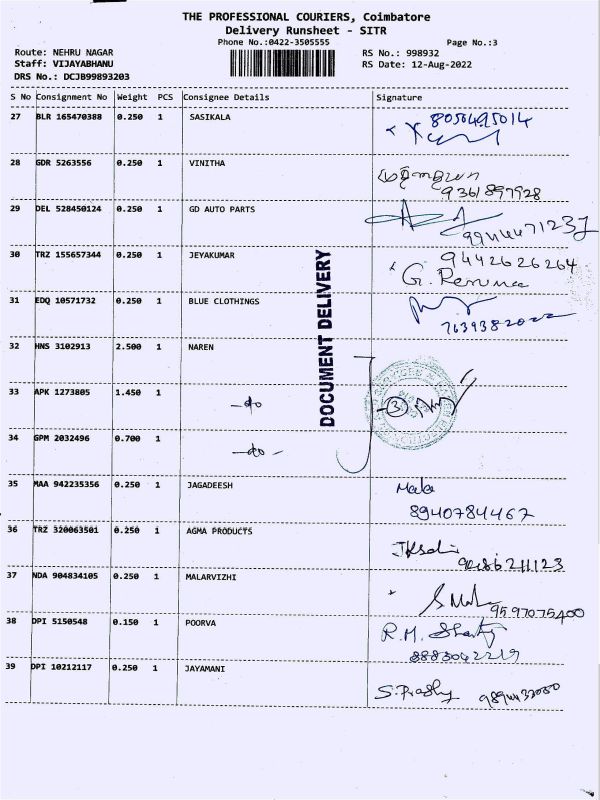 THE PROFESSIONAL COURIERS, Coimbatore
Delivery Runsheet - SITR
Phone No.:0422-3505555 Page No.:3
Route: NEHRU NAGAR RS No.: 998932
Staff: VIJAYABHANU RS Date: 12-Aug-2022
DRS No.: DCJB99893203
S No Consignment No Weight PCS Consignee Details Signature
27 BLR 165470388 0.250 1 SASIKALA 8050495014
28 GDR 5263556 0.250 1 VINITHA
9361897928
29 DEL 528450124 0.250 1 GD AUTO PARTS
9944471237
30 TRZ 155657344 0.250 1 JEYAKUMAR 9442626264
G. Renuka
31 EDQ 10571732 0.250 1 BLUE CLOTHINGS
7639382022
DOCUMENT DELIVERY
32 HNS 3102913 2.500 1 NAREN
33 APK 1273805 1.450 1 -do 3
34 GPM 2032496 0.700 1 -do-
35 MAA 942235356 0.250 1 JAGADEESH Mala
8940784467
36 TRZ 320063501 0.250 1 AGMA PRODUCTS
37 NDA 904834105 0.250 1 MALARVIZHI
9597075400
38 DPI 5150548 0.150 1 POORVA R.M.
8883042219
39 DPI 10212117 0.250 1 JAYAMANI